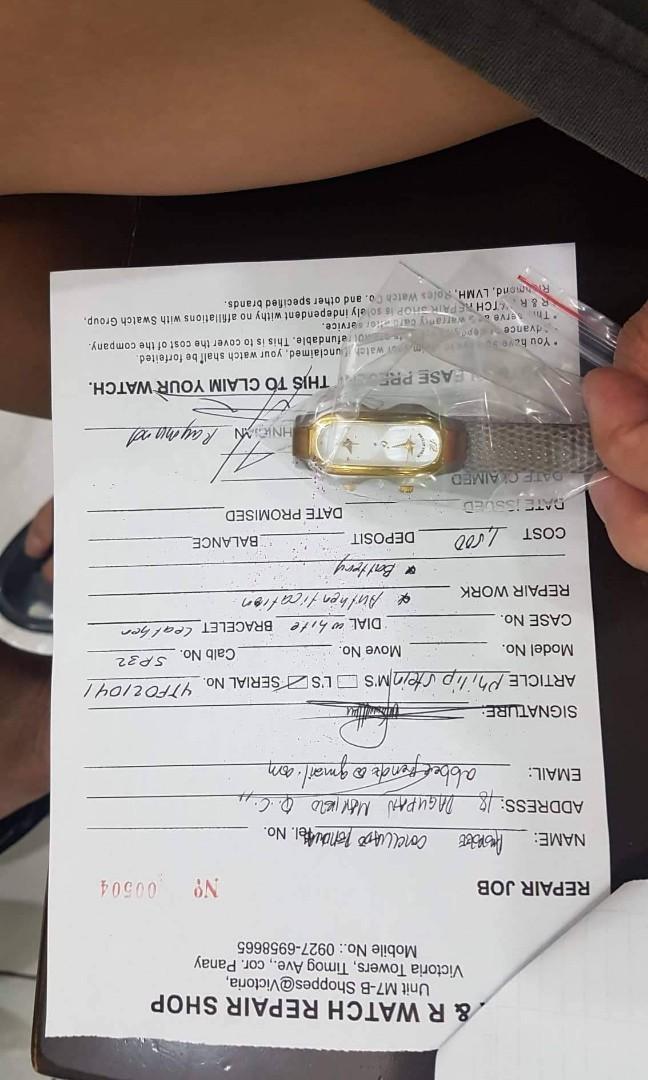 & R WATCH REPAIR SHOP
Unit M7-B Shoppes@Victoria,
Victoria Towers, Timog Ave., cor. Panay
Mobile No.: 0927-6958665
REPAIR JOB No 00504
NAME: Tel. No.
ADDRESS: 18 DAGUPAN Q.C.
EMAIL: @gmail.com
SIGNATURE:
ARTICLE Philip Stein M'S L'S SERIAL No. 4TF021041
Model No. Move No. Calb No. SP32
CASE No. DIAL white BRACELET Leather
REPAIR WORK * Authentication
* Battery
COST 1,500 DEPOSIT BALANCE
DATE ISSUED DATE PROMISED
DATE CLAIMED
Raymund
THIS TO CLAIM YOUR WATCH.
* You have unclaimed, your watch shall be forfeited.
refundable. This is to cover the cost of the company.
warranty card after service.
* R & R WATCH REPAIR SHOP is solely independent with no affiliations with Swatch Group,
Richmond, LVMH, Rolex Watch Co. and other specified brands.